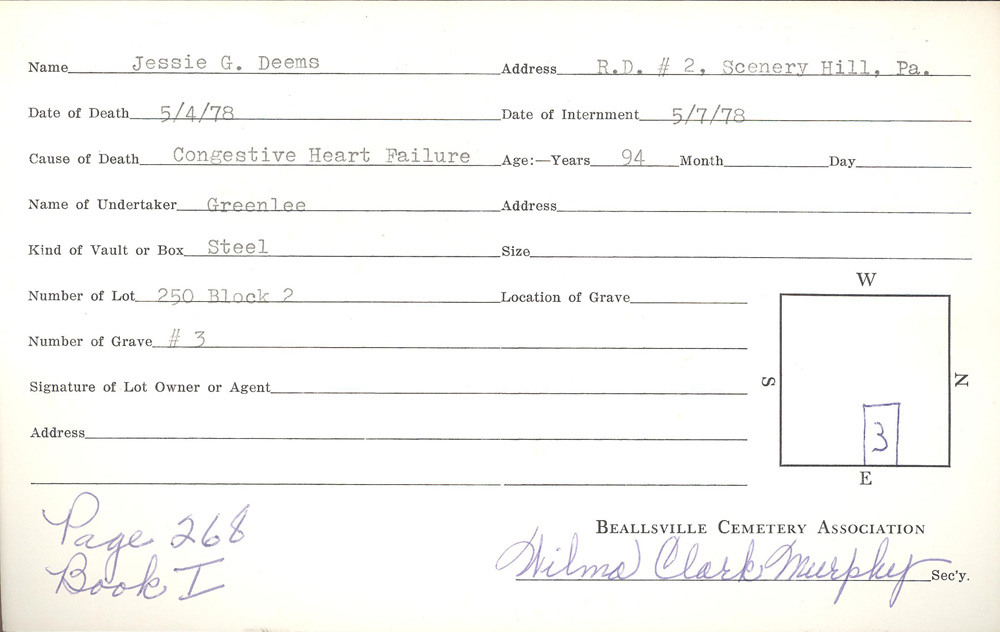 Name Jessie G. Deems Address R.D. # 2, Scenery Hill, Pa.
Date of Death 5/4/78 Date of Internment 5/7/78
Cause of Death Congestive Heart Failure Age:—Years 94 Month Day
Name of Undertaker Greenlee Address
Kind of Vault or Box Steel Size
Number of Lot 250 Block 2 Location of Grave
Number of Grave # 3
Signature of Lot Owner or Agent
Address
W
S
N
3
E
Page 268
Book I
BEALLSVILLE CEMETERY ASSOCIATION
Wilma Clark Murphy Sec'y.